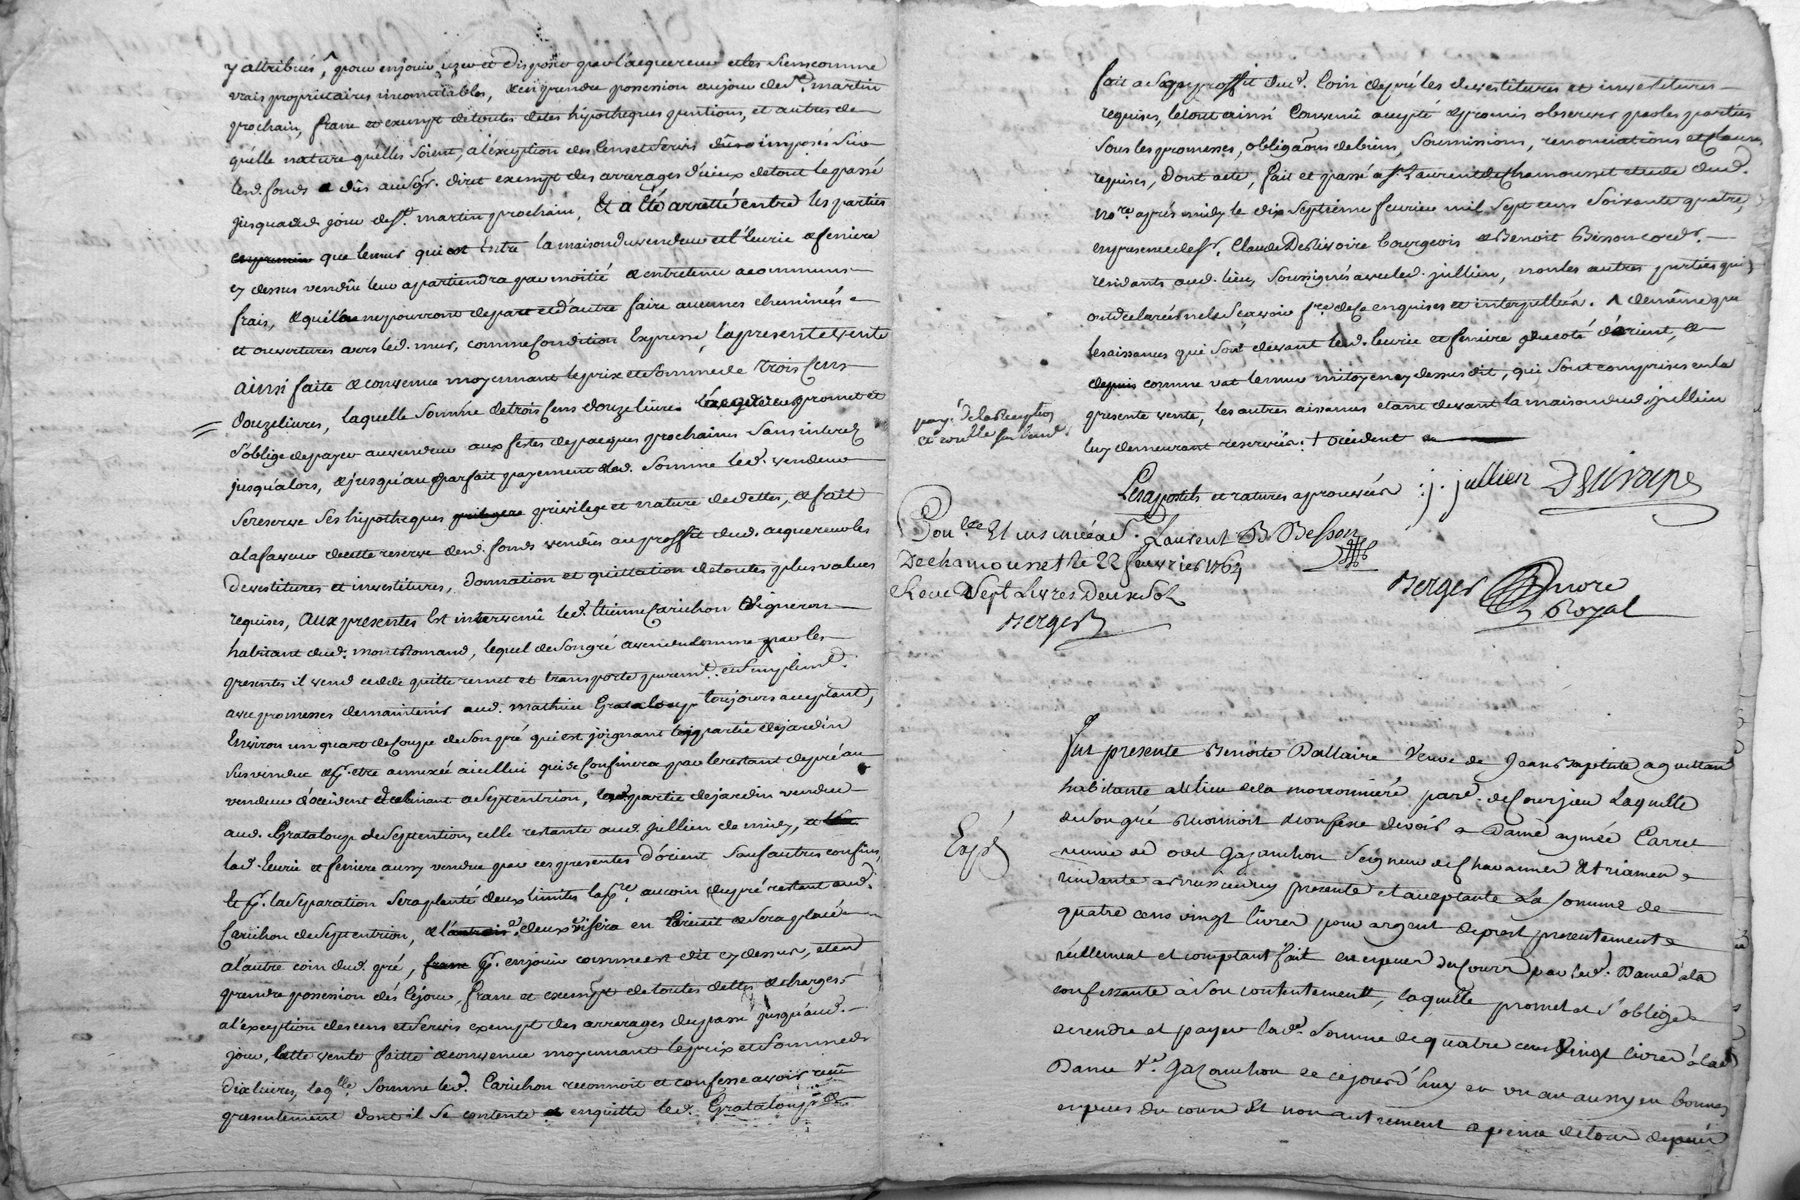 y attribués, pour en jouir user et disposer par l'acquereur et les siens comme
vrais proprietaires incommutables, et en prendre possession au jour de st. martin
prochain, franc et exempt de toutes dettes hypotheques pentions, et autres de
quelle nature quelles soient, a l'exception des cens et servis imposés sur
led. fonds dûs au sgr. direct exempt des arrerages d'iceux de tout le passé
jusquaud. jour de st. martin prochain, Et a été arretté entre les parties
que le mur qui est Entre la maison du vendeur et l'ecurie et feniere
cy dessus vendüe leur apartiendra par moitié et entretenu a communs
frais, et quils ne pourront de part et d'autre faire aucunes cheminées
et ouvertures avers led. mur, comme condition Expresse, la presente vente
ainsi faite et convenue moyennant le prix et somme de Trois Cens
Douze livres, laquelle somme de trois cens douze livres l'acquereur promet et
s'oblige de payer au vendeur aux festes de paques prochaines sans interez
jusqu'alors, et jusqu'au parfait payement de lad. somme led. vendeur
se reserve ses hypotheques privilege et nature de dettes, et fait
a la faveur de cette reserve desd. fonds vendûs au proffit dud. acquereur les
devestitures et investitures, donnation et quittation de toutes plus values
requises, aux presentes Est intervenû led. Etienne Carichon vigneron
habitant aud. montRomand, lequel de son gré a vendu comme par les
presentes il vend cede quitte remet et transporte puremt. et simplemt.
avec promesses de maintenir aud. mathieu Grataloup toujours acceptant,
Environ un quart de Coupe de son pré qui est joignant la partie de jardin
sus vendue et pr. etre annexée a icelluy qui se confinera par le restant de pré au
vendeur d'occident et tendant a septentrion, lad. partie de jardin vendue
aud. Grataloup de septention, celle restante aud. jullien de midy,
lad. Ecurie et feniere aussy vendue par ces presentes d'orient, sauf autres confins,
et pr. la separation sera planté deux limites la pre. au coin du pré restant aud.
Carichon de septentrion, et l'autre en et sera placé
a l'autre coin dud. pré, pr. en jouir comme est dit cy dessus, et en
prendre possession dés ce jour, franc et exempt de toutes dettes et charges
a l'exception des cens et servis exempt des arrerages du passé jusqu'aud.
jour, Cette vente faitte et convenue moyennant le prix et somme de
Dix livres, laqlle. somme led. Carichon reconnoit et confesse avoir reçu
presentement dont il se contente et en quitte led. Grataloup
fait a son proffit dud. Coin de pré les devestitures et investitures
requises, le tout ainsi Convenû accepté et promis observer par les parties
sous les promesses, obligaons de biens, soumissions, renonciations et clauses
requises, Dont acte, fait et passé a st. Laurent de Chamousset etude dud.
nore. aprés midy le dix septieme fevrier mil sept cens soixante quatre,
en presence de sr. Claude Deslivoire Bourgeois et Benoit Besson cordr.
residants aud. lieu, soussignés avec led. jullien, non les autres parties qui
ont declaré ne le sçavoir fre. de ce enquises et interpellées. et de même que
les aissances qui sont devant lad. Ecurie et feniere du coté d'orient, et
depuis comme vat le mur mitoyen cy dessus dit, qui sont comprises en la
presente vente, les autres aissances etant devant la maison dud. jullien
luy demeurant reservées. + occident
Les apostils et ratures aprouvées : j. jullien
B Besson
Berger nore Royal
Con.lle Et insinué a st. Laurent
De chamousset le 22 fevrier 1764
Recu Sept Livres Deux sols
Berger
Expé
Fut presente Benoite Dallaire Veuve de Jean Baptiste aguettant
habitante au lieu de la morronniere parr. de Courzieu Laquelle
de son gré reconnoit et confesse devoir a Dame aymée Carret
veuve de odet Gazanchon Seigneur de Chavannes
residante presente et acceptante La somme de
quatre cens vingt livres pour argent de prest presentement
réellement et comptant fait en especes du cours par lad. Dame a la
confessante a son contentement, laquelle promet et s'oblige
de rendre et payer lad. somme de quatre cens vingt livres a lad.
Dame Ve. Gazanchon de ce jourd'huy en un an aussy en bonnes
especes du cours et non autrement a peine de tous depens